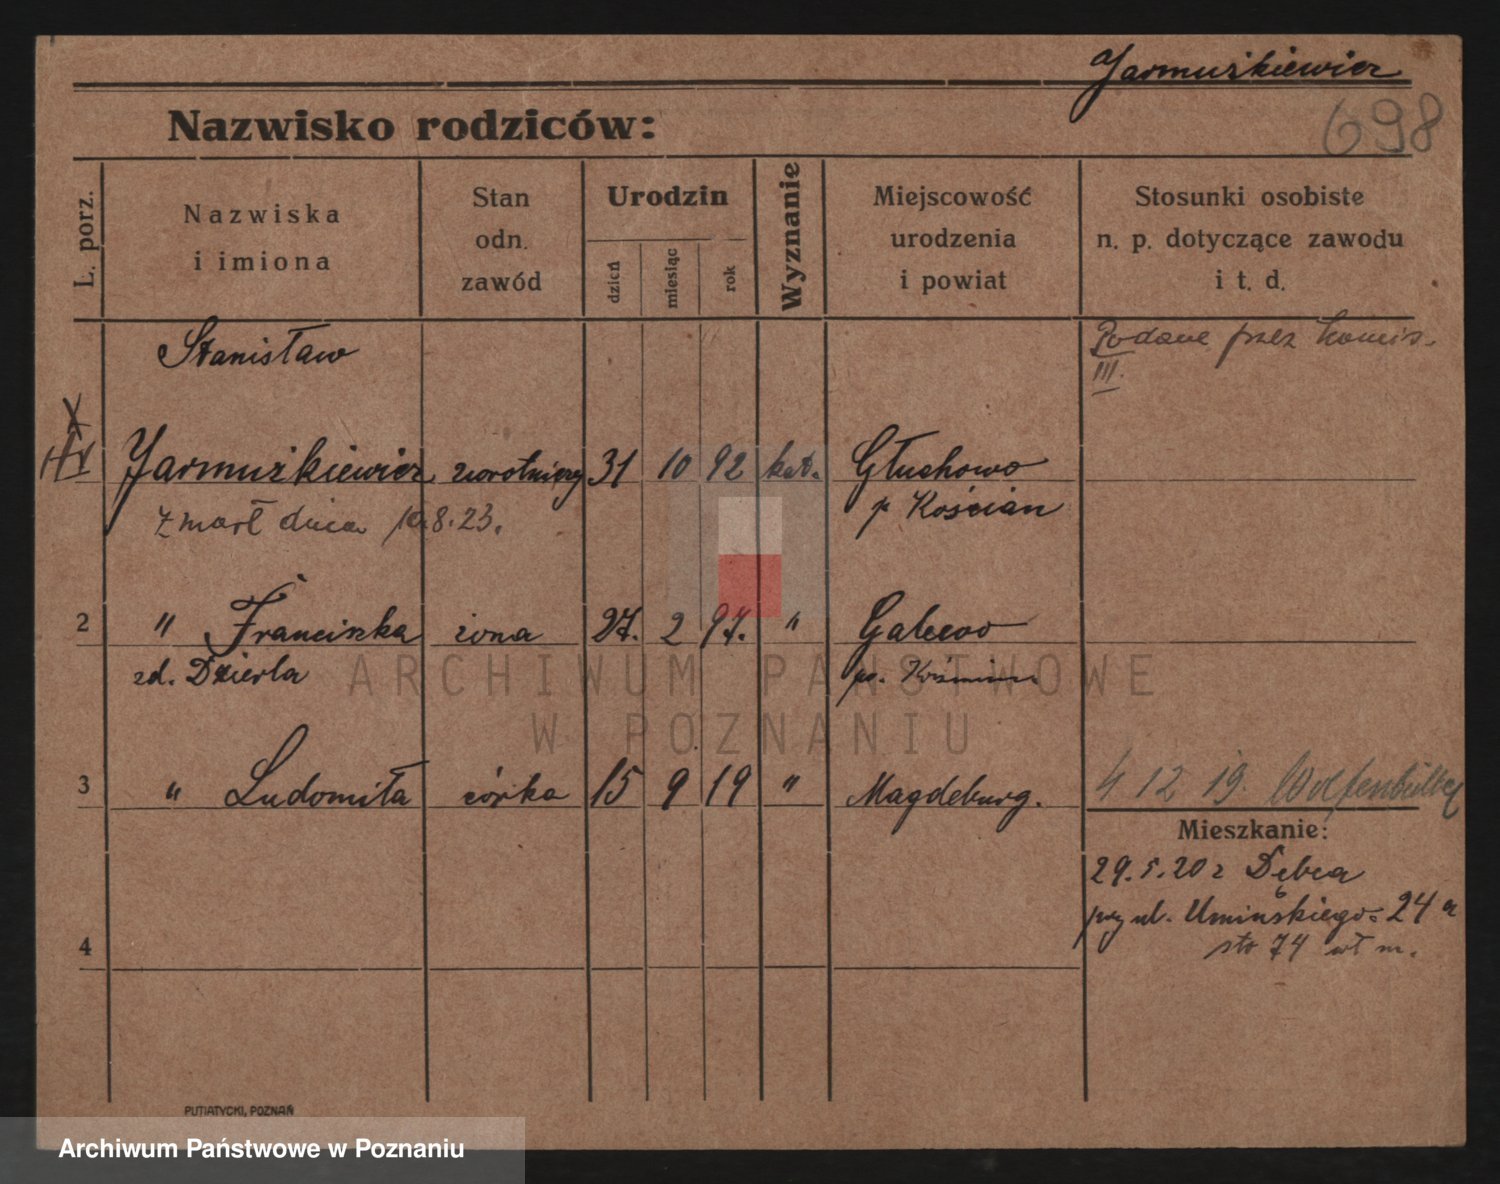 Jarmużkiewicz
698
Nazwisko rodziców:
L. porz.
Nazwiska
i imiona
Stan
odn.
zawód
Urodzin
dzień
miesiąc
rok
Wyznanie
Miejscowość
urodzenia
i powiat
Stosunki osobiste
n. p. dotyczące zawodu
i t. d.
Stanisław
Podane przez komis.
III.
Jarmużkiewicz zwrotniczy 31 10 92 kat. Głuchowo
p Kościan
zmarł dnia 10.8.23.
2 " Franciszka żona 27. 2 97. " Galewo
zd. Dzierla po. Koźmin
3 " Ludomiła córka 15 9 19 " Magdeburg. 4 12 19. Wolfenbüttel
Mieszkanie:
29.5.20 z Dębca
przy ul. Umińskiego 24 a
sto 74 wł m.
4
PUTIATYCKI, POZNAŃ
ARCHIWUM PAŃSTWOWE
W POZNANIU
Archiwum Państwowe w Poznaniu